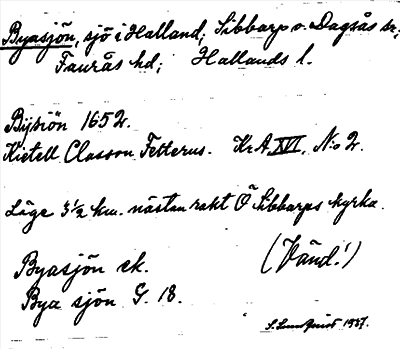 Byasjön, sjö i Halland; Sibbarp o. Dagsås sn;
Faurås hd; Hallands l.
Bÿsiön 1652.
Kietell Classon Fetterus. Kr.A. XVI, N:o 2.
Läge 3½ km. nästan rakt Ö Sibbarps kyrka.
Byasjön ek.
(Vänd!)
Bya sjön G. 18.
S. Lundquist 1937.